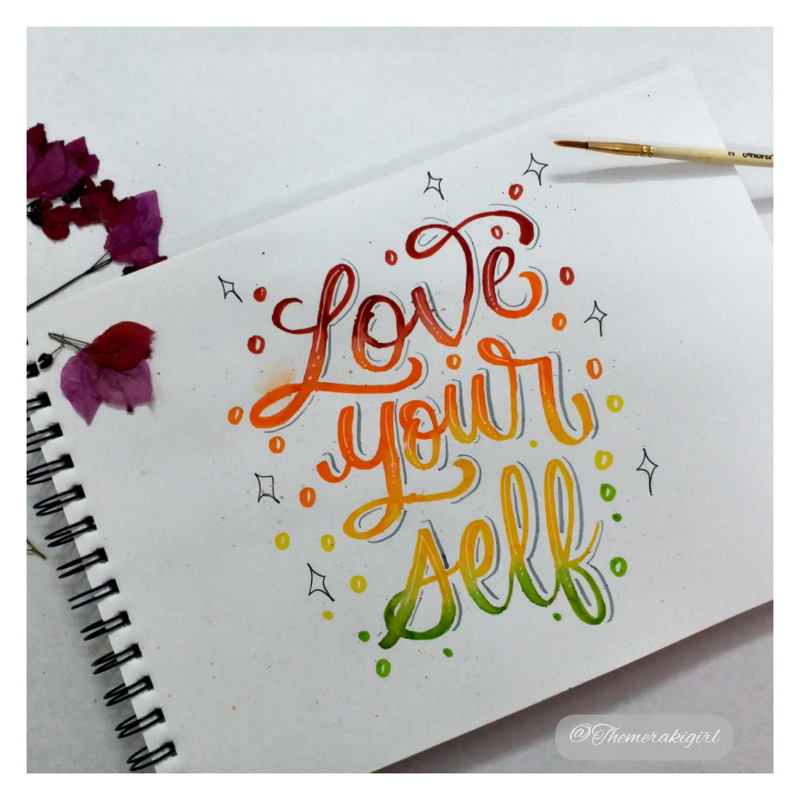 Love
your
self
@Themerakigirl